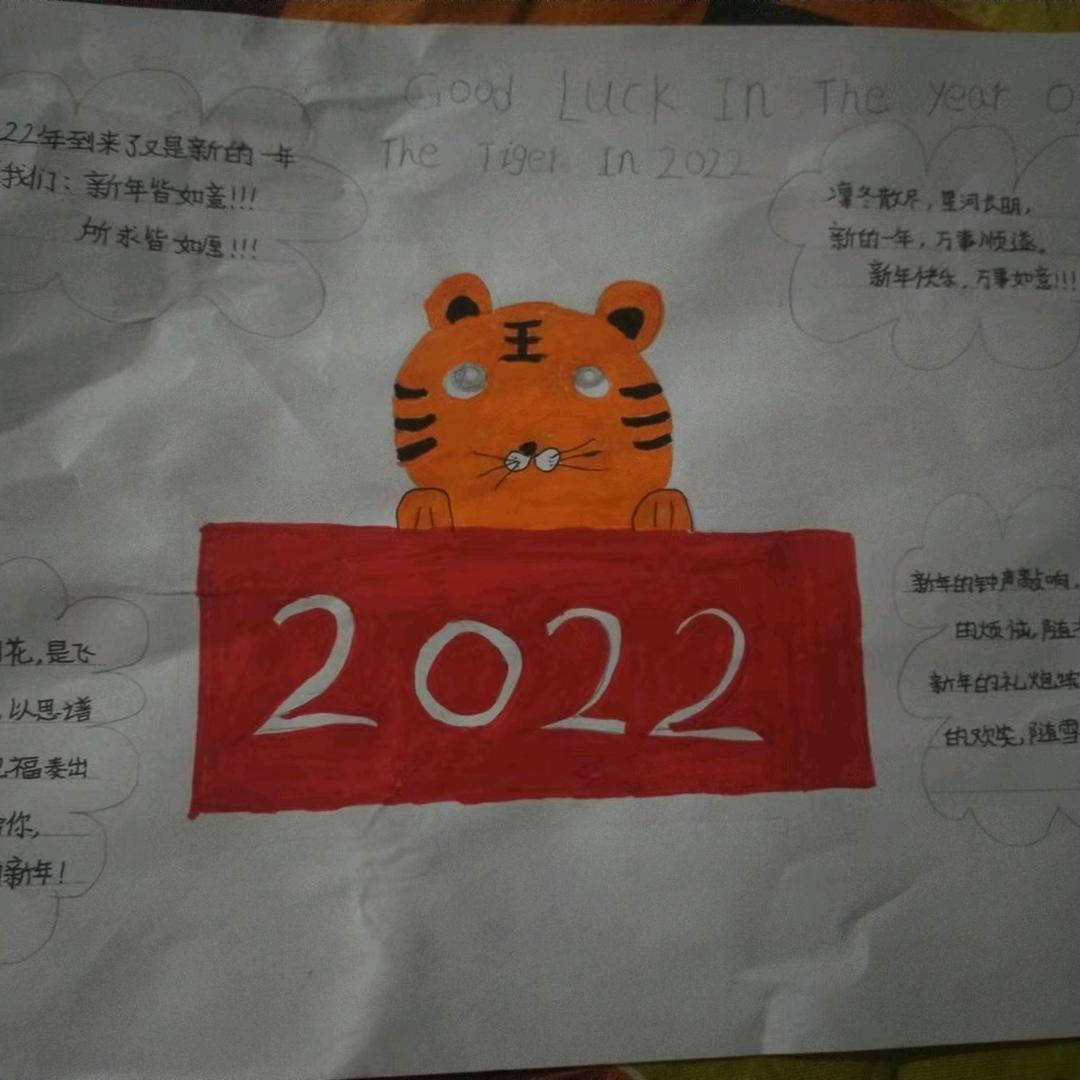 Good Luck In The year o
The Tiger In 2022
22年到来了又是新的一年
我们：新年皆如意!!!
所求皆如愿!!!
凛冬散尽，星河长明，
新的一年，万事顺遂。
新年快乐，万事如意!!!
王
2022
花，是飞
，以思谱
福奏出
你，
新年！
新年的钟声敲响，
的烦恼，随
新年的礼炮
的欢笑，随雪